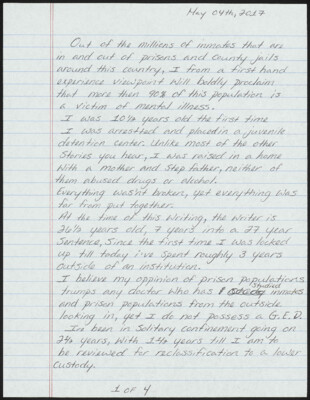 May 04th, 2017
Out of the millions of inmates that are
in and out of prisons and County jails
around this country, I from a first hand
experience viewpoint will boldly proclaim
that more then 90% of this population is
a victim of mental illness.
I was 10½ years old the first time
I was arrestted and placed in a juvenile
detention center. Unlike most of the other
stories you hear, I was raised in a home
with a mother and step father, neither of
them abused drugs or alcohol.
Everything wasn't broken, yet everything was
far from put together.
At the time of this writing, the writer is
26½ years old, 7 years into a 27 year
Sentence, Since the first time I was locked
up till today i've spent roughly 3 years
outside of an institution.
I believe my oppinion of prison populations
trumps any doctor who has studied inmates
and prison populations from the outside
looking in, yet I do not possess a G.E.D.
I'm been in Solitary confinement going on
2½ years, with 1½ years till I am to
be reviewed for reclassification to a lower
custody.
1 OF 4